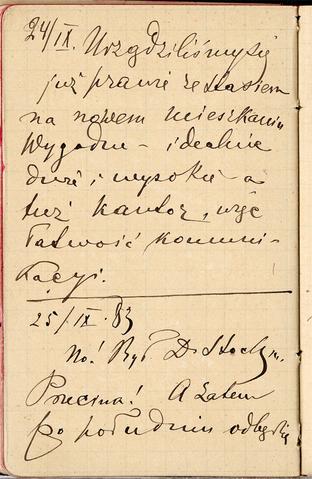 24/IX. Urządziliśmy się
już prawie ze Stasiem
na nowem mieszkaniu
Wygodne - idealnie
duże i wysokie - a
tuż kantor, więc
łatwość komuni-
kacyi.
25/IX. 83
No! Był Dr
A zatem
po południu odbędzie